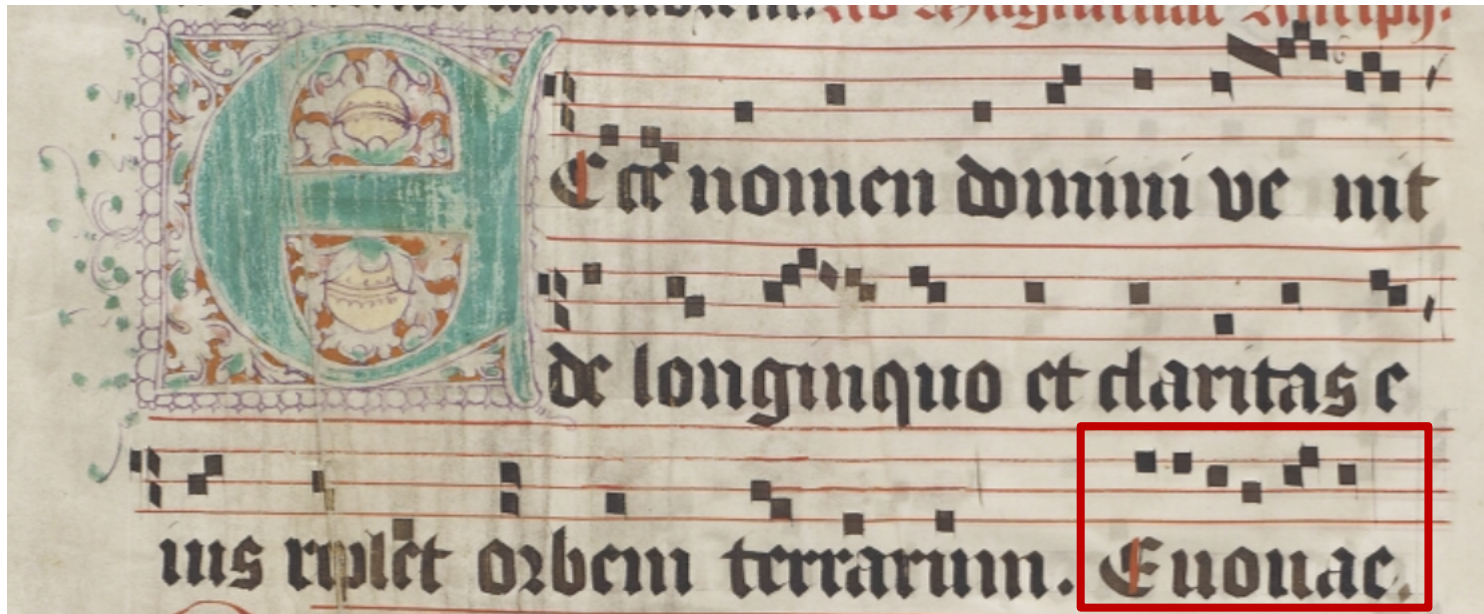 Ad Magnificat Antiph.
ECce nomen domini ve nit
de longinquo et claritas e
ius replet orbem terrarum. Euouae.